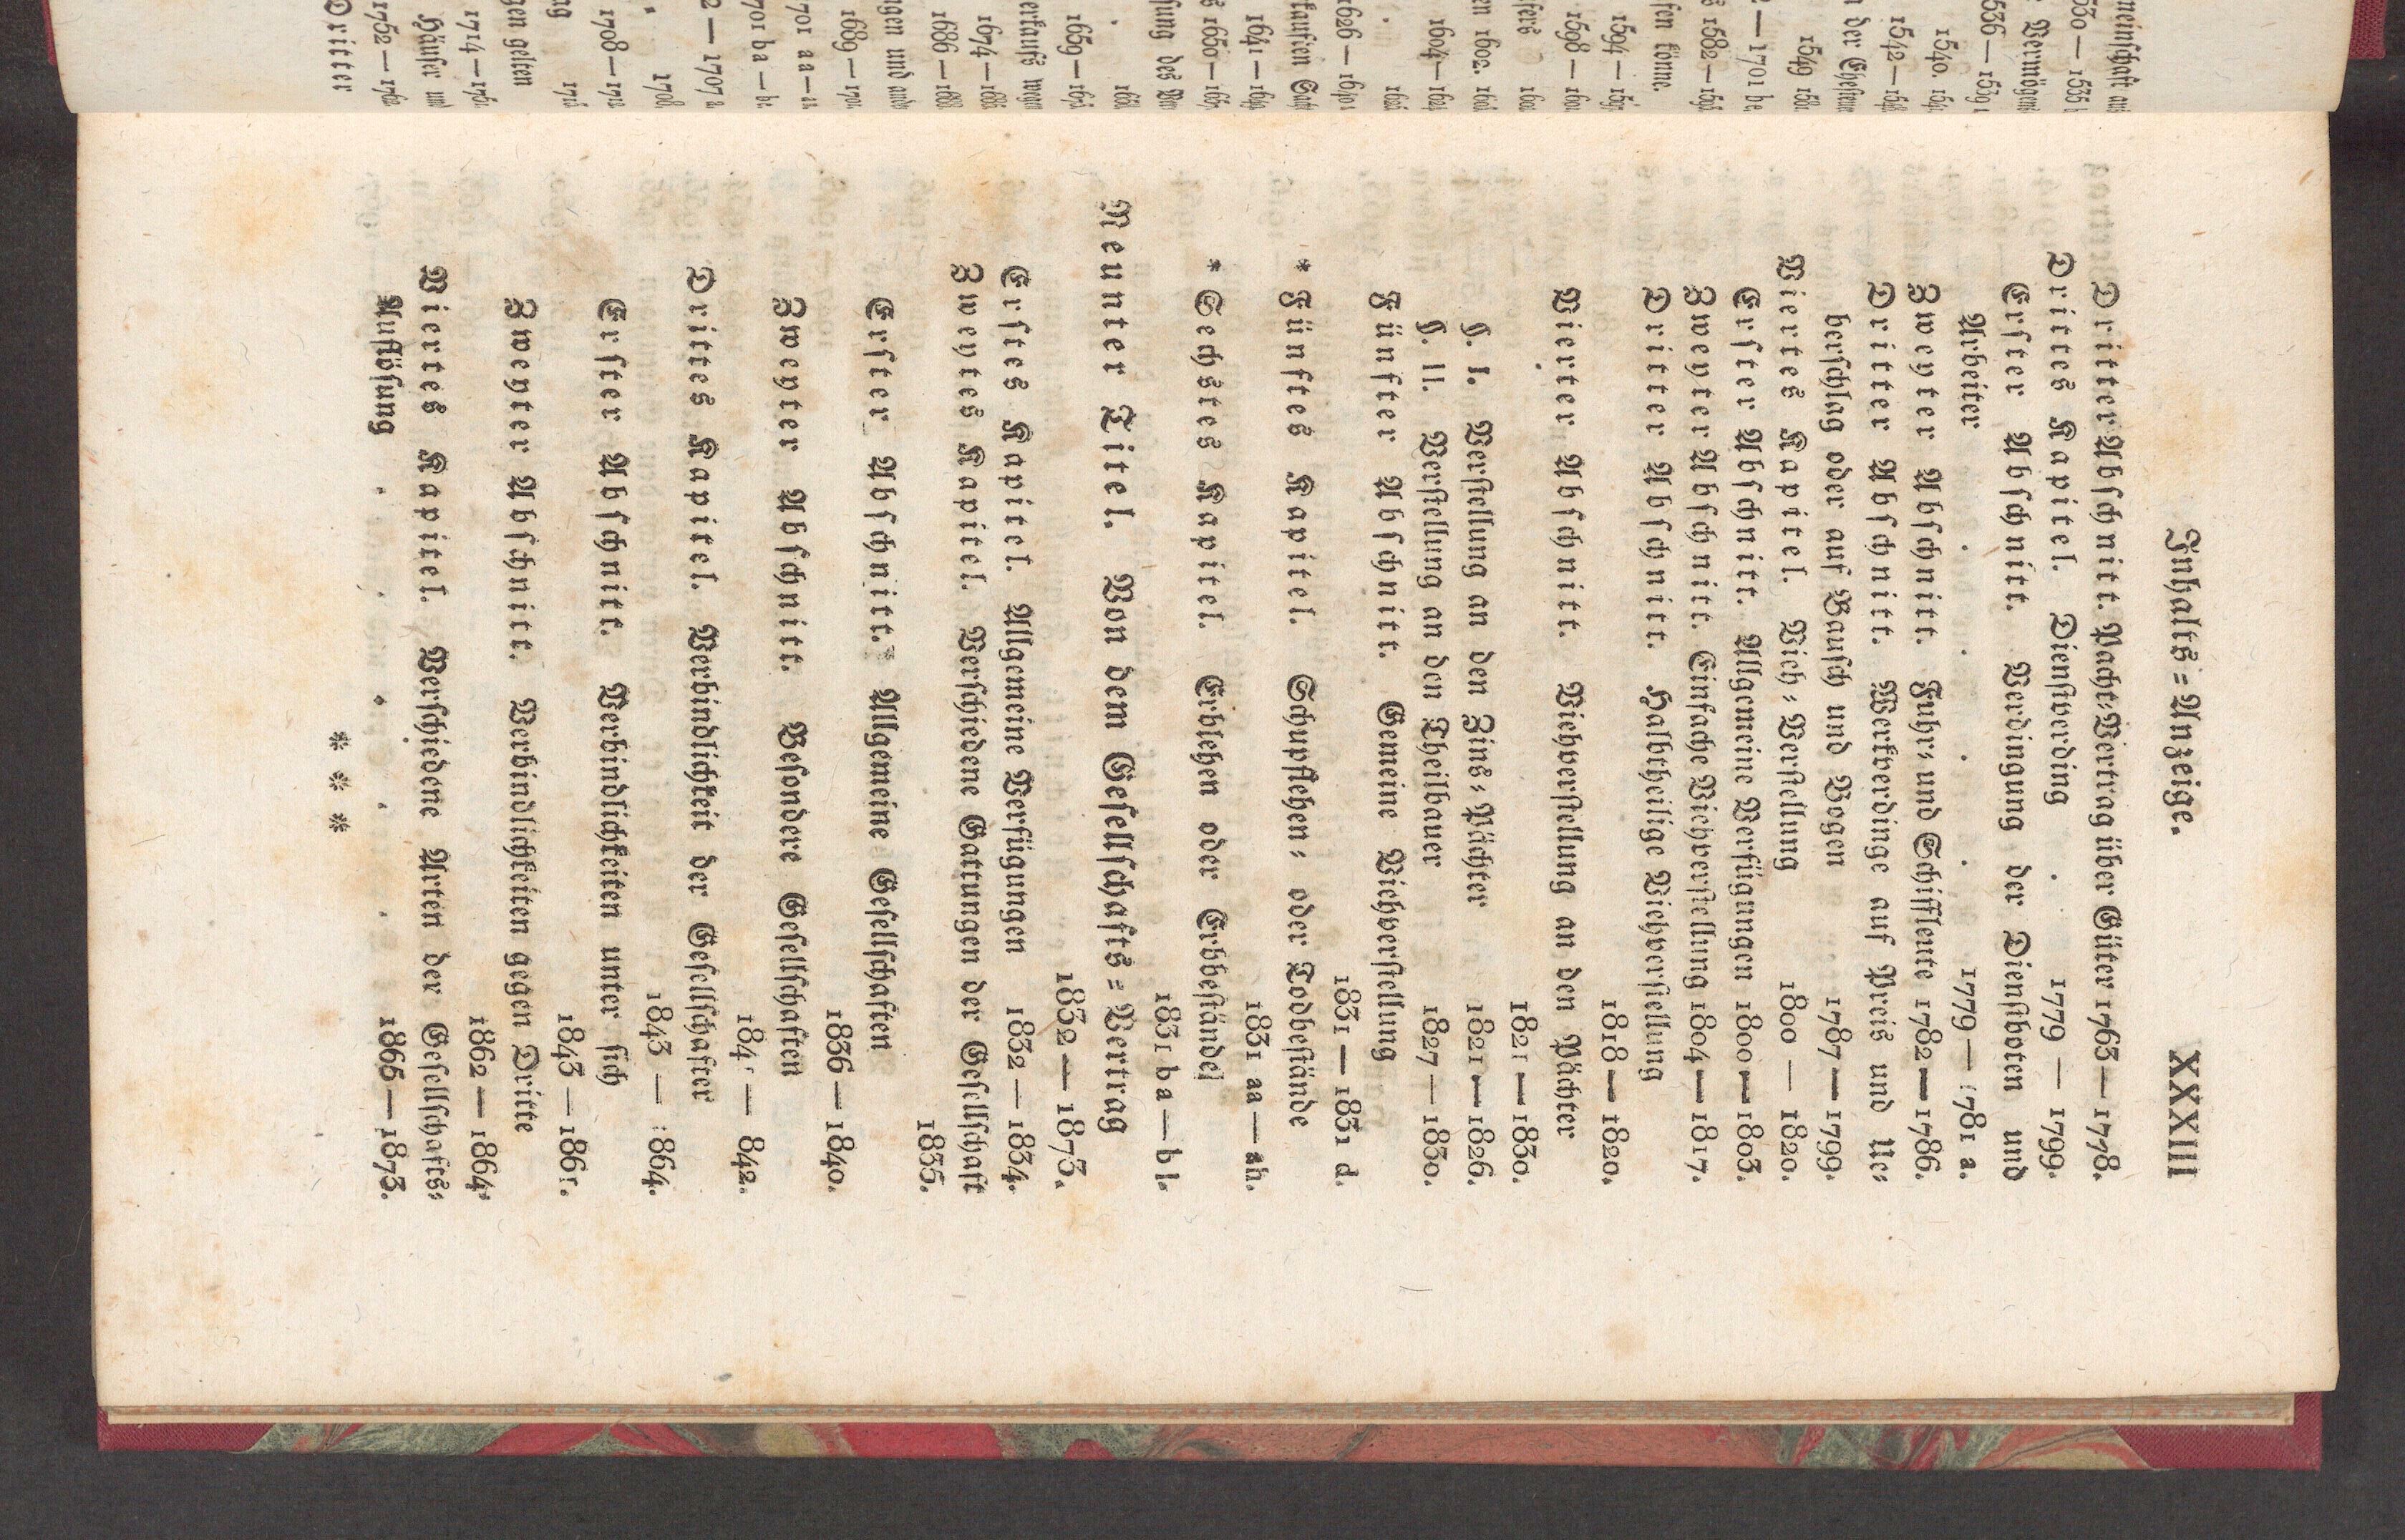 Inhalts=Anzeige. XXXIII
Dritter Abschnitt. Pacht=Vertrag über Güter 1763—1778.
Drittes Kapitel. Dienstverding . 1779 — 1799.
Erster Abschnitt. Verdingung der Dienstboten und
Arbeiter . . . . 1779 — 1781 a.
Zweyter Abschnitt. Fuhr= und Schiffleute 1782 — 1786.
Dritter Abschnitt. Werkverdinge auf Preis und Ue=
berschlag oder auf Bausch und Bogen 1787 — 1799.
Viertes Kapitel. Vieh=Verstellung 1800 — 1820.
Erster Abschnitt. Allgemeine Verfügungen 1800 — 1803.
Zweyter Abschnitt. Einfache Viehverstellung 1804 — 1817.
Dritter Abschnitt. Halbtheilige Viehverstellung
1818 — 1820.
Vierter Abschnitt. Viehverstellung an den Pächter
1821 — 1830.
§. I. Verstellung an den Zins=Pächter 1821 — 1826.
§. II. Verstellung an den Theilbauer 1827 — 1830.
Fünfter Abschnitt. Gemeine Viehverstellung
1831 — 1831 d.
* Fünftes Kapitel. Schupflehen= oder Todbestände
1831 aa — ah.
* Sechstes Kapitel. Erblehen oder Erbbeständel
1831 ba — bl.
Neunter Titel. Von dem Gesellschafts=Vertrag
1832 — 1873.
Erstes Kapitel. Allgemeine Verfügungen 1832 — 1834.
Zweytes Kapitel. Verschiedene Gattungen der Gesellschaft
1835.
Erster Abschnitt. Allgemeine Gesellschaften
1836 — 1840.
Zweyter Abschnitt. Besondere Gesellschaften
1841 — 842.
Drittes Kapitel. Verbindlichkeit der Gesellschafter
1843 — 1864.
Erster Abschnitt. Verbindlichkeiten unter sich
1843 — 1861.
Zweyter Abschnitt. Verbindlichkeiten gegen Dritte
1862 — 1864.
Viertes Kapitel. Verschiedene Arten der Gesellschafts=
Auflösung . . . . 1865 — 1873.
* * *